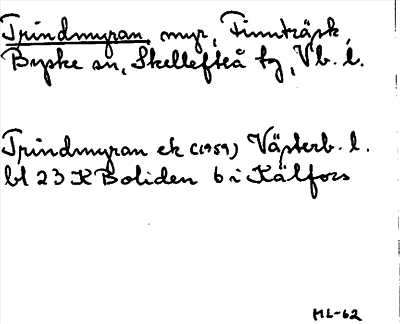 Trindmyran, myr, Finnträsk,
Byske sn, Skellefteå tg, Vb. l.
Trindmyran ek (1959) Västerb. l.
bl 23 K Boliden 6 i Kålfors
ML-62